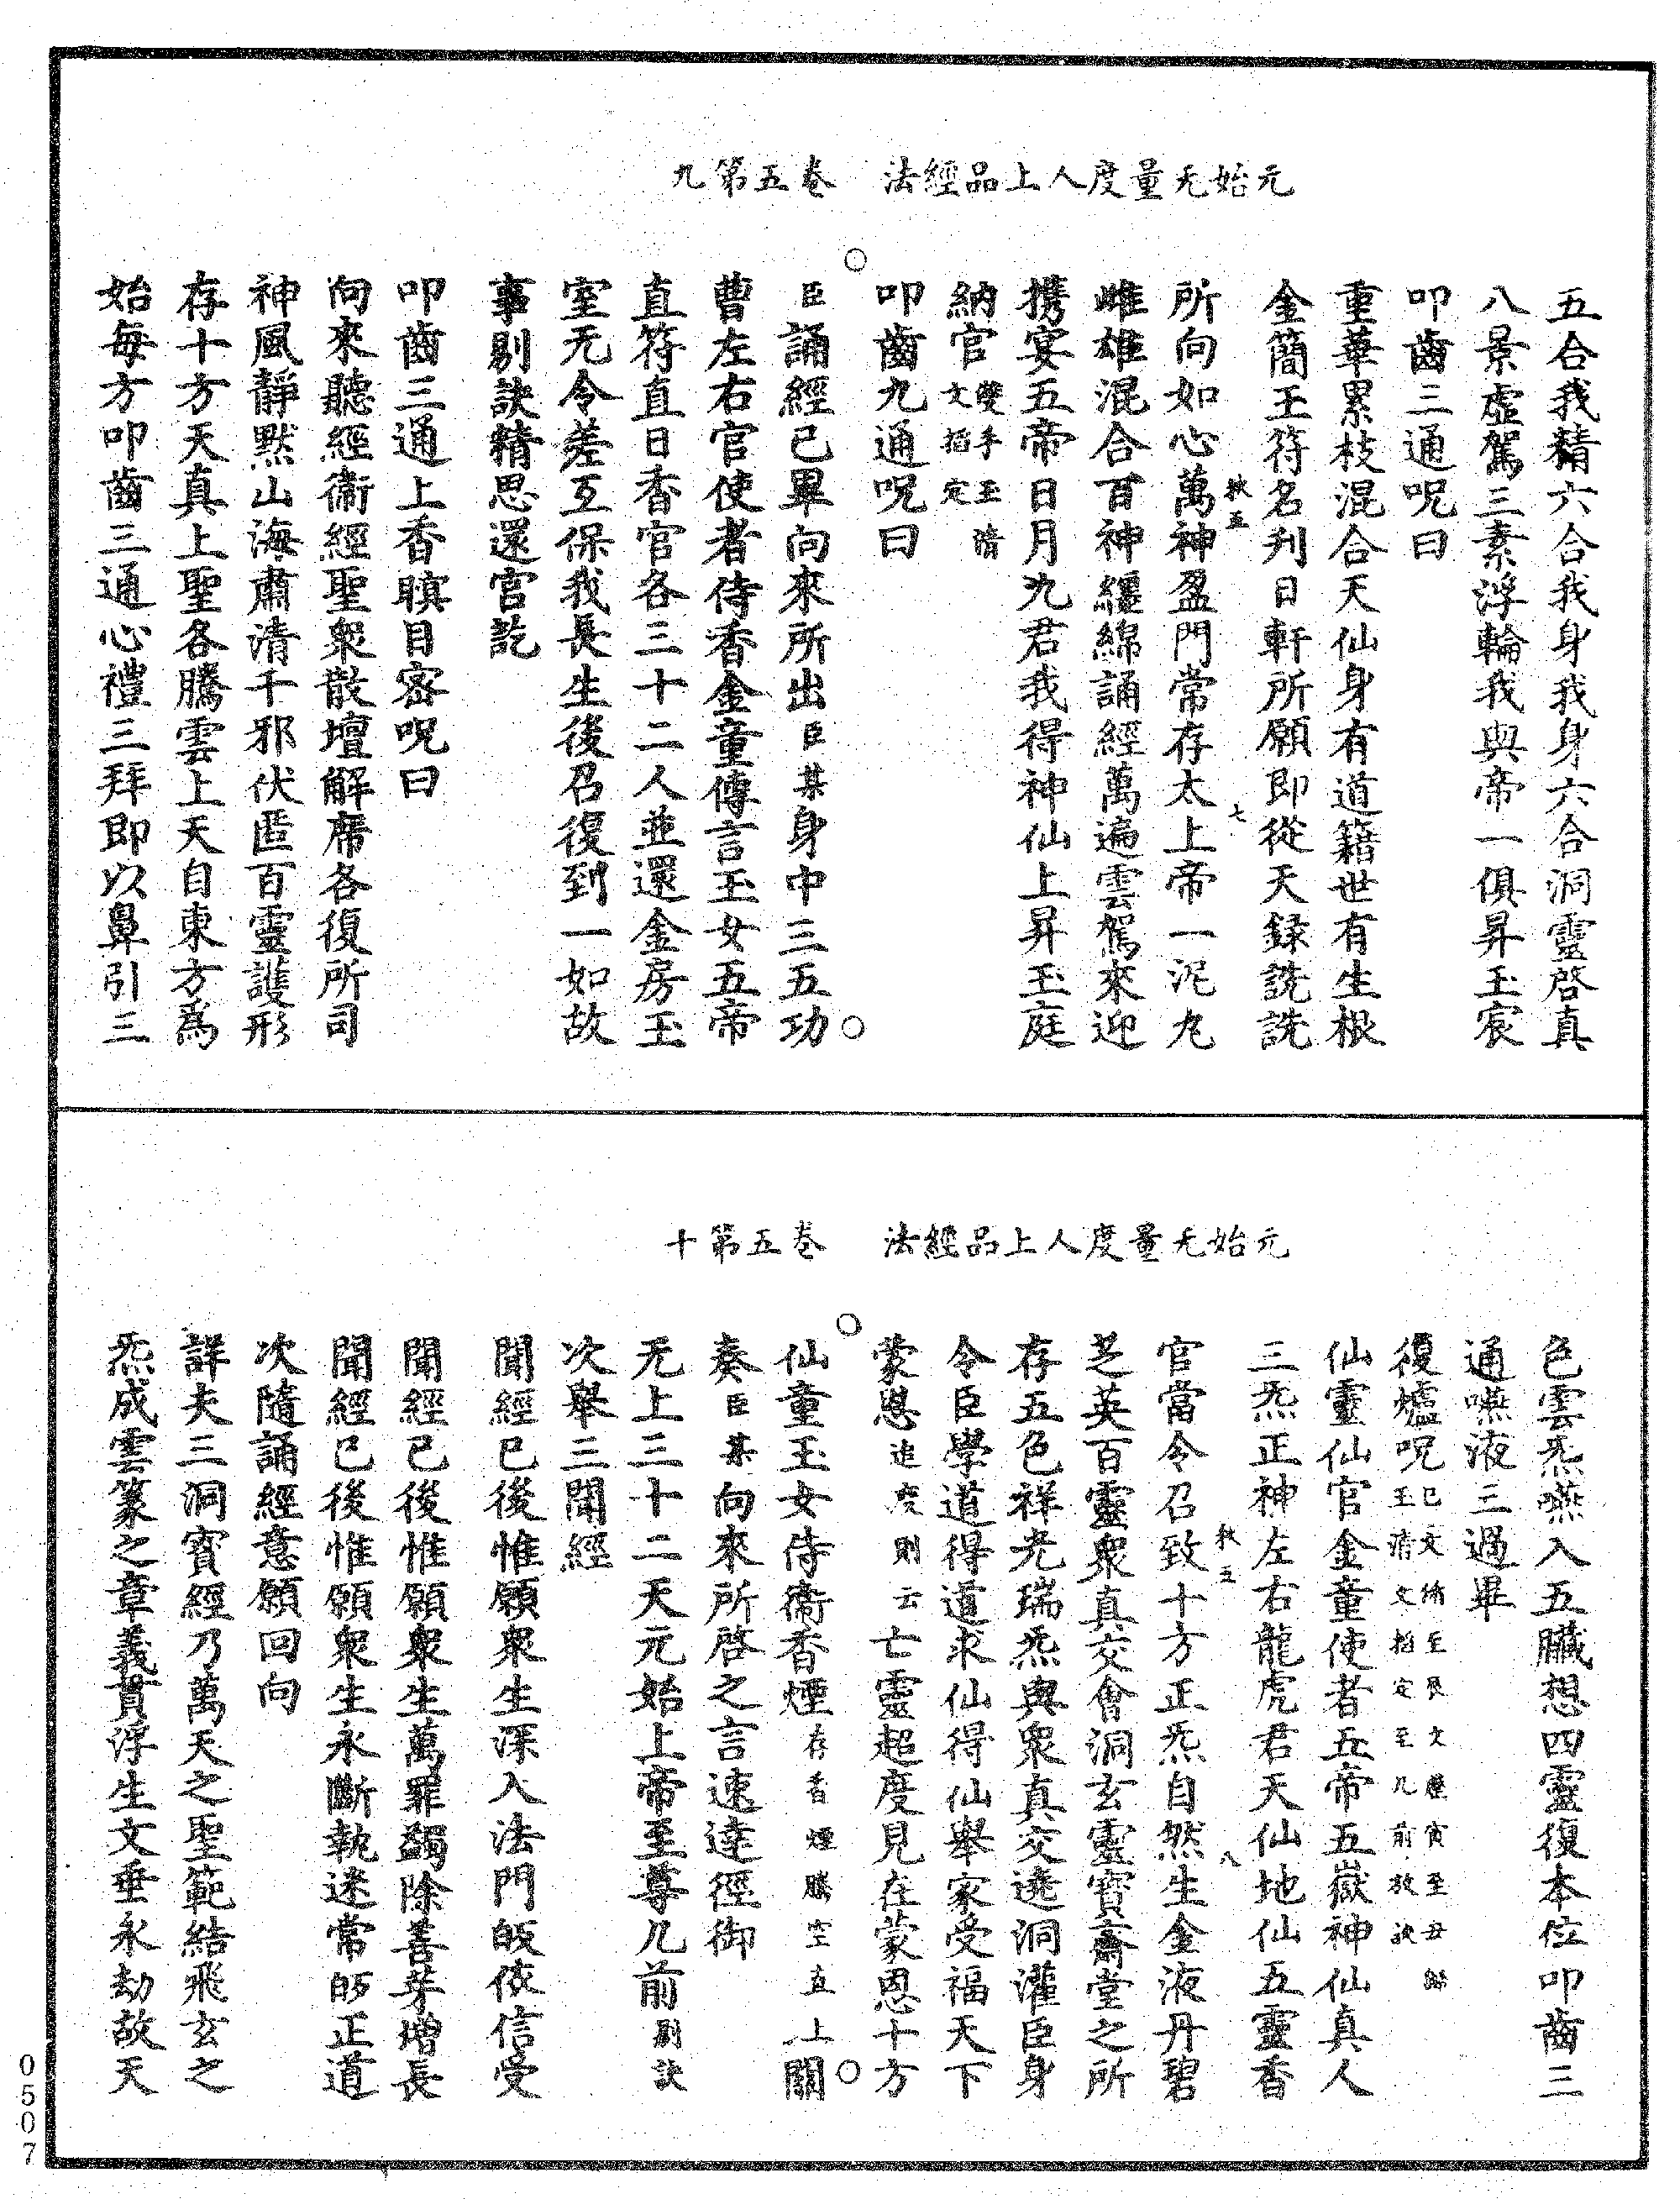 元始无量度人上品經法 卷五第九
五合我精六合我身我身六合洞靈啓真
八景虛駕三素浮輪我與帝一俱昇玉宸
叩齒三通呪曰
重華累枝混合天仙身有道籍世有生根
金簡玉符名刋日軒所願即從天錄詵詵
秋五 七
所向如心萬神盈門常存太上帝一泥丸
雌雄混合百神纏綿誦經萬遍雲駕來迎
携宴五帝日月九君我得神仙上昇玉庭
納官雙手玉清文掐定
叩齒九通呪曰
臣誦經已畢向來所出臣某身中三五功
曹左右官使者侍香金童傳言玉女五帝
直符直日香官各三十二人並還金房玉
室无令差互保我長生後召復到一如故
事剔訣精思還宫訖
叩齒三通上香瞑目密呪曰
向來聽經衞經聖衆散壇解席各復所司
神風靜默山海肅清千邪伏匿百靈護形
存十方天真上聖各騰雲上天自東方爲
始每方叩齒三通心禮三拜即以鼻引三
元始无量度人上品經法 卷五第十
色雲炁嚥入五臟想四靈復本位叩齒三
通嚥液三過畢
復爐呪已文玉清文掐定至几前放訣
仙靈仙官金童使者五帝五嶽神仙真人
三炁正神左右龍虎君天仙地仙五靈香
秋五 八
官當令召致十方正炁自然生金液丹碧
芝英百靈衆真交會洞玄靈寶齋堂之所
存五色祥光瑞炁與衆真交遶洞灌臣身
令臣學道得道求仙得仙舉家受福天下
蒙恩追度則云亡靈超度見在蒙恩十方
仙童玉女侍衞香煙存香煙騰空直上關
奏臣某向來所啓之言速達徑御
无上三十二天元始上帝至尊几前剔訣
次舉三聞經
聞經已後惟願衆生深入法門皈依信受
聞經已後惟願衆生萬罪蠲除善芽增長
聞經已後惟願衆生永斷執迷常皈正道
次隨誦經意願回向
詳夫三洞寳經乃萬天之聖範結飛玄之
炁成雲篆之章義貫浮生文垂永劫故天
0507